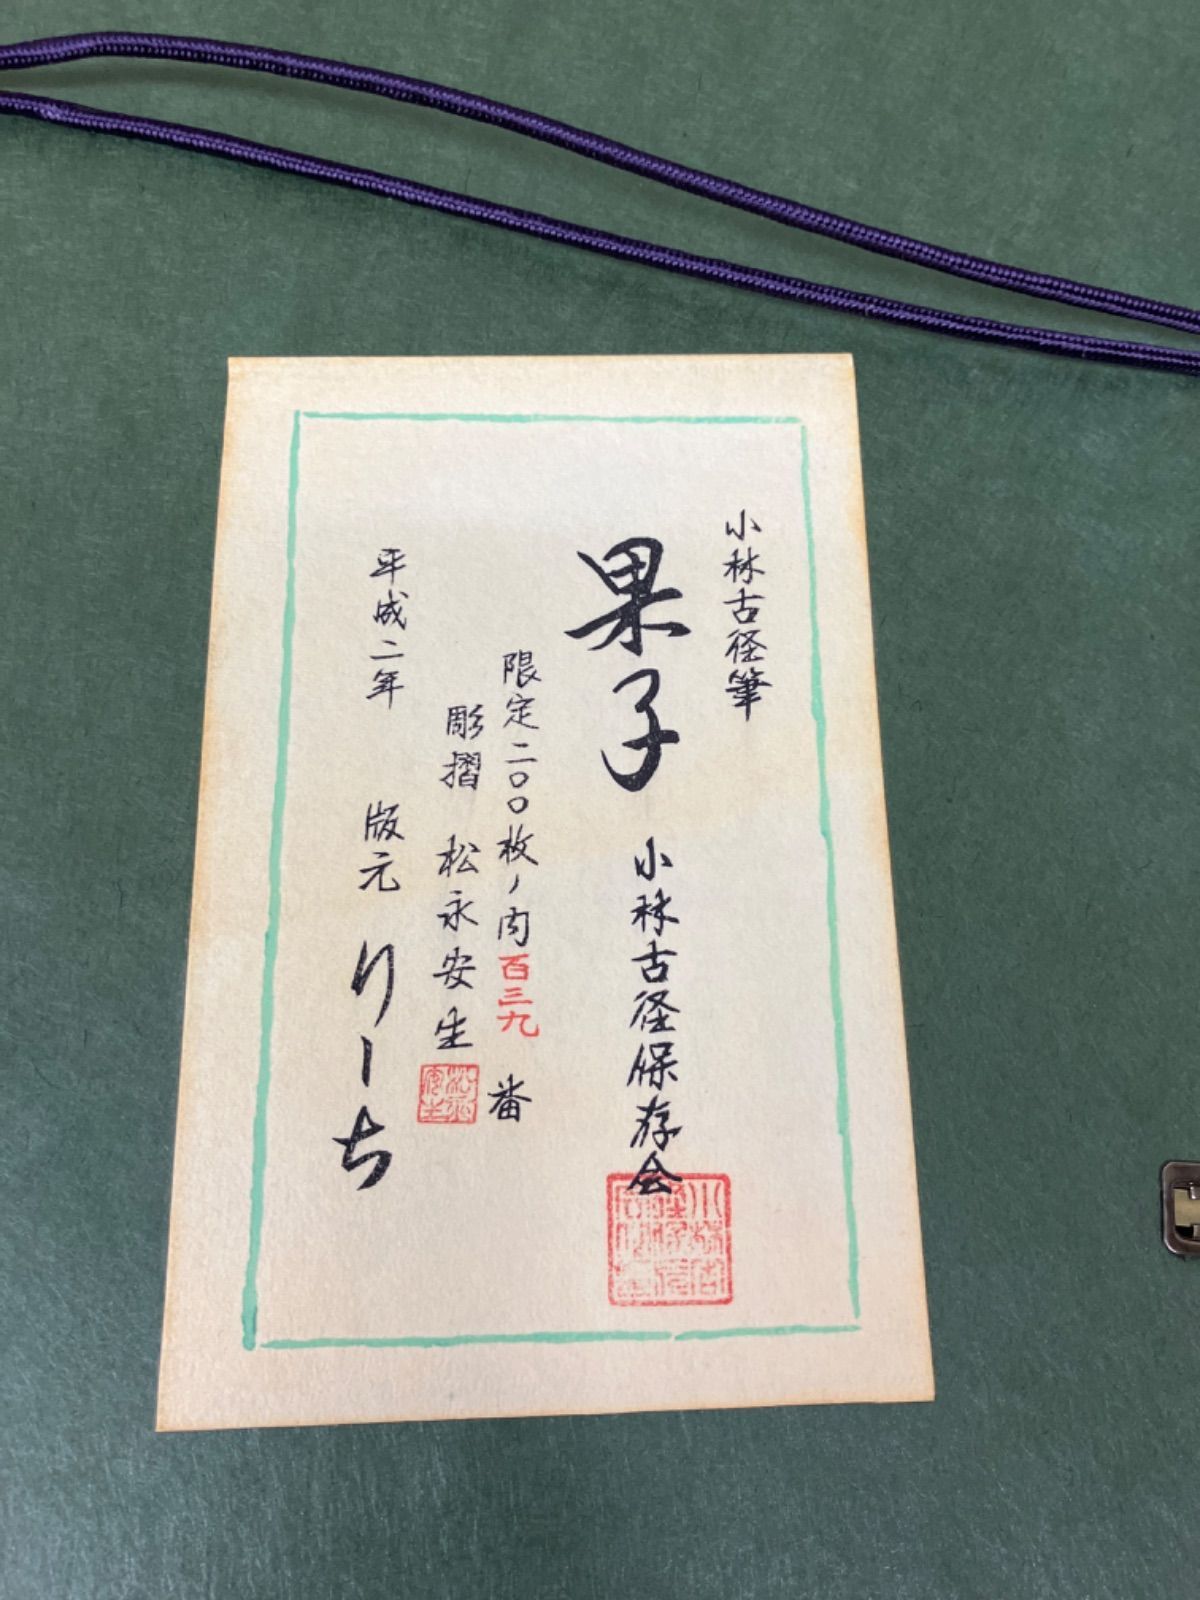 小林古径筆
果子 小林古径保存会
限定二〇〇枚ノ内百三九番
彫摺 松永安生
平成二年 版元 りーち